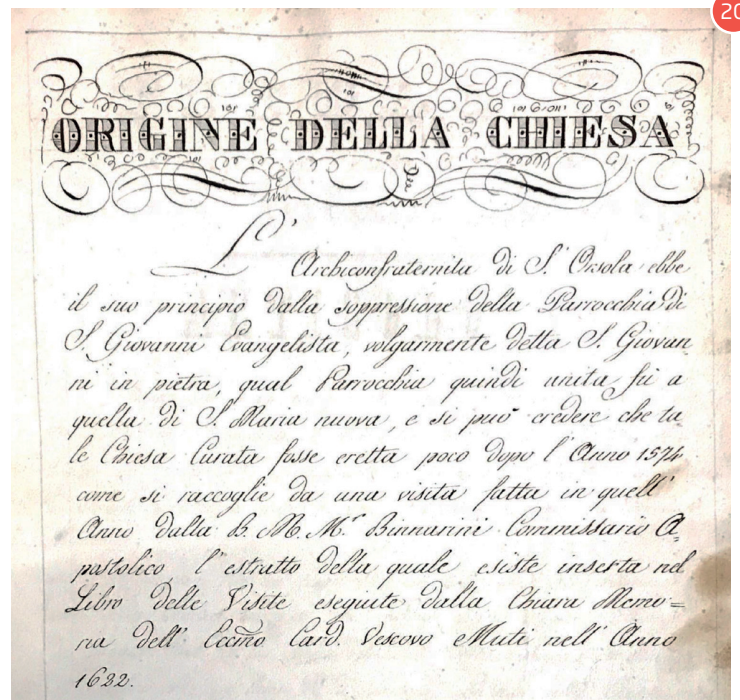 20
ORIGINE DELLA CHIESA
L' Archiconfraternita di S. Orsola ebbe
il suo principio dalla soppressione della Parrocchia di
S. Giovanni Evangelista, volgarmente detta S. Giovan
ni in pietra, qual Parrocchia quindi unita fù a
quella di S. Maria nuova, e si può credere che ta
le Chiesa Curata fosse eretta poco dopo l'Anno 1574
come si raccoglie da una visita fatta in quell'
Anno dalla B. M. M.r Binnarini Commissario A=
postolico, l'estratto della quale esiste inserta nel
Libro delle Visite eseguite dalla Chiara Memo=
ria dell' Eccmo Card. Vescovo Muti nell' Anno
1622.